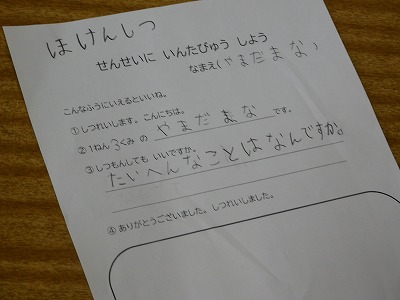 ほけんしつ
せんせいに いんたびゅう しよう
なまえ(やまだまな)
こんなふうにいえるといいね。
①しつれいします。こんにちは。
②1ねん3くみ の やまだまな です。
③しつもんしても いいですか。
たいへんなことはなんですか。
④ありがとうございました。しつれいしました。